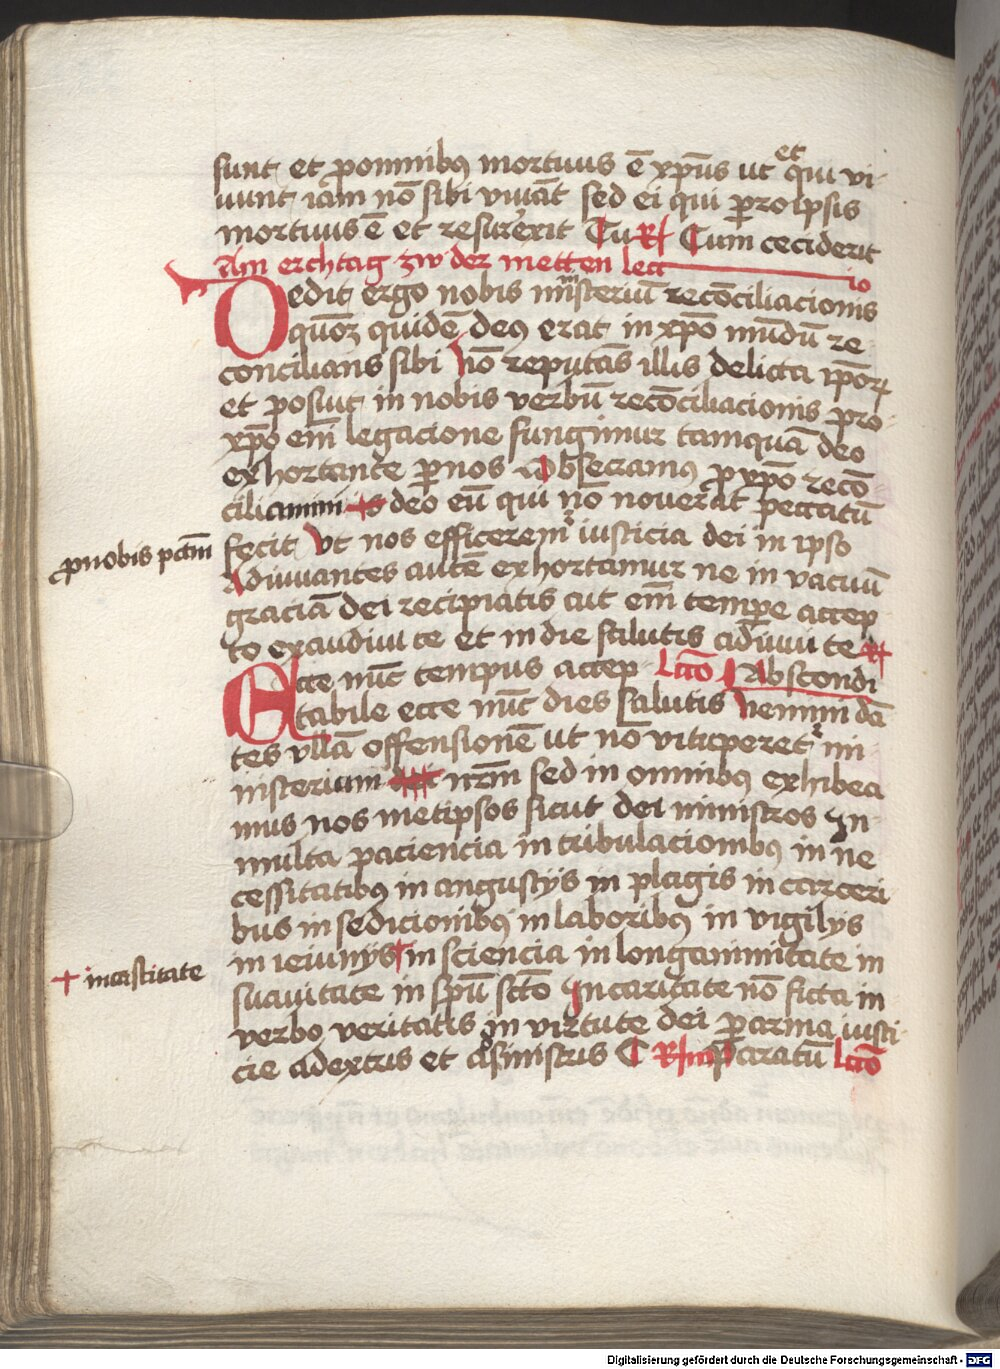 sunt et ꝓ omnibꝯ mortuus ē xp̄us ut et qui vi-
uunt iam nō sibi viuāt sed ei qui ꝓ ipsis
mortuus ē et resurexit Tu R Cum ceciderit
Am erchtag zw der metten lectio
Dedit ergo nobis misterium reconciliacionis
quoꝝ quidē deꝯ erat in xp̄o mūdū re-
concilians sibi nō reputās illis delicta ipoꝝ
et posuit in nobis verbū recōciliacionis pro
xp̄o em̄ legacione fungimur tamquā deo
exhortante ꝑ nos obsecramꝯ ꝓ xp̄o recō
ciliamini deo eū qui nō nouerat peccatū
ꝓ nobis pctm̄
fecit vt nos efficerem̄ iusticia dei in ipso
Adiuuantes autē exhortamur ne in vacuū
graciā dei recipiatis ait em̄ tempe accep
to exaudiui te et in die salutis adiuui te R
Ecce nūc tempus accep- Lcco Abscondi
tabile ecce nūc dies salutis Nemini dā
tes vllā offensionē ut nō vitupereť mi
nisterium nrm̄ sed in omnibꝯ exhibea
mus nos metipsos sicut dei ministros In
multa paciencia in tribulacionibꝯ in ne
cessitatibꝯ in angustys in plagis in carceri
bus in sedicionibꝯ in laboribꝯ in vigilys
in ieiunys + in sciencia in longanimitate in
+ in castitate
suauitate in spū scto In caritate nō ficta in
verbo veritatis in virtute dei ꝑ arma iusti-
cie a dextris et a sinistris R paratū Lcco
Digitalisierung gefördert durch die Deutsche Forschungsgemeinschaft - DFG